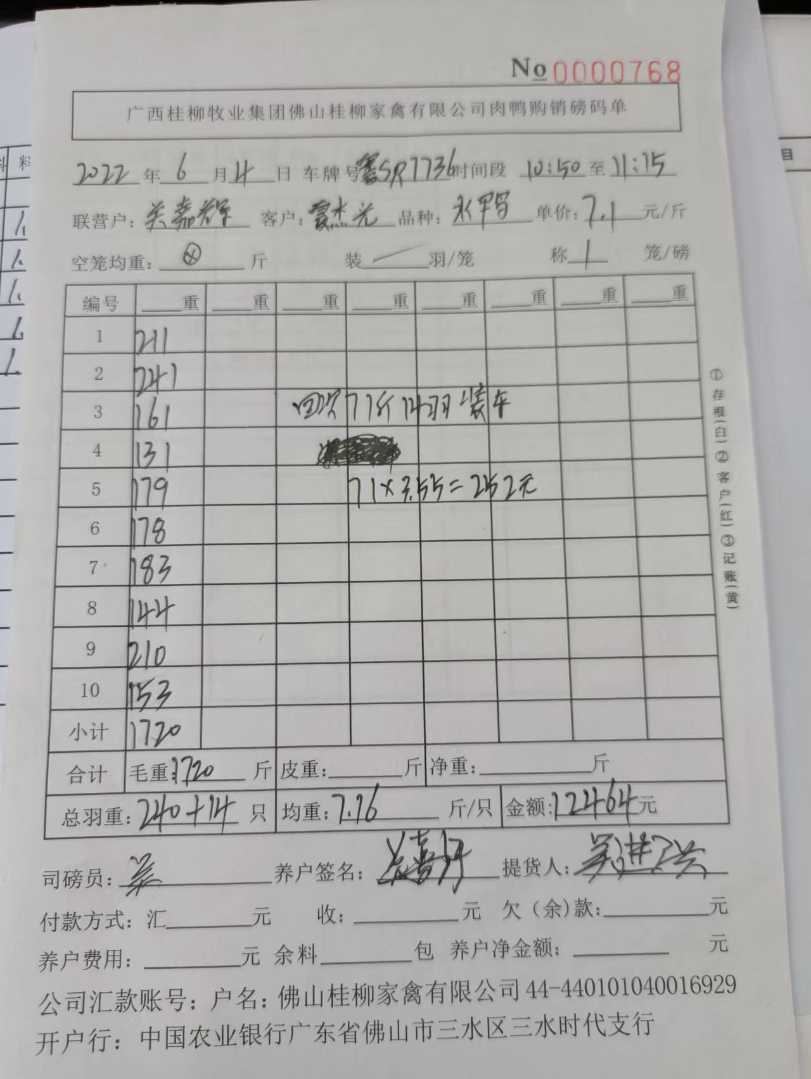 No 0000768
广西桂柳牧业集团佛山桂柳家禽有限公司肉鸭购销磅码单
2022年6月4日 车牌号 SR7736 时间段 10:50至11:15
联营户：关嘉辉 客户： 杰 品种： 鸭 单价：7.1元/斤
空笼均重：⊗斤 装 — 羽/笼 称1笼/磅
编号 重 重 重 重 重 重 重 重
1 211
2 241
3 161 四次71斤14羽装车
4 131
5 179 71×3.55=252元
6 178
7 183
8 144
9 210
10 153
小计 1720
合计 毛重：1720斤 皮重：斤 净重：斤
总羽重：240+14只 均重：7.16斤/只 金额：12464元
司磅员： 养户签名：关嘉辉 提货人：
付款方式：汇元 收：元 欠（余）款：元
养户费用：元 余料包 养户净金额：元
公司汇款账号：户名：佛山桂柳家禽有限公司44-440101040016929
开户行：中国农业银行广东省佛山市三水区三水时代支行
①存根(白)②客户(红)③记账(黄)